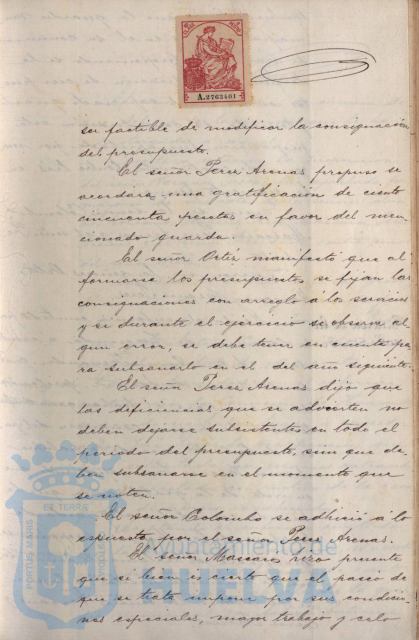 A.2763401
ser factible de modificar la consignación
del presupuesto.
El señor Perez Arenas propuso se
acordára una gratificación de ciento
cincuenta pesetas en favor del men-
cionado guarda.
El señor Ortiz manifestó que al
formarse los presupuestos se fijan las
consignaciones con arreglo á los servicios
y si durante el ejercicio se observa al
gun error, se debe tener en cuenta pa
ra subsanarlo en el del año siguiente.
El señor Perez Arenas dijo que
las deficiencias que se advierten no
deben dejarse subsistentes en todo el
periodo del presupuesto, sinó que de-
ben subsanarse en el momento que
se noten.
El señor Colombo se adhirió á lo
expuesto por el señor Perez Arenas.
El señor Mascaró hizo presente
que si bien es cierto que el paseo de
que se trata impone por sus condicio
nes especiales, mayor trabajo y celo
PORTUS MARIS
ET TERRAE
Ayuntamiento de
HUELVA